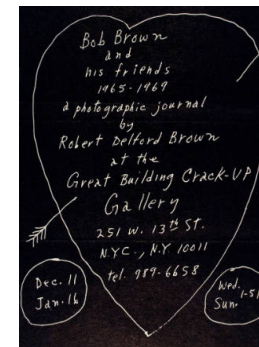 Bob Brown
and
his friends
1965-1969
a photographic journal
by
Robert Delford Brown
at the
Great Building Crack-UP
Gallery
251 W. 13th St.
N.Y.C., N.Y 10011
tel. 989-6658
Dec. 11
Jan. 16
Wed.
Sun.
1-5